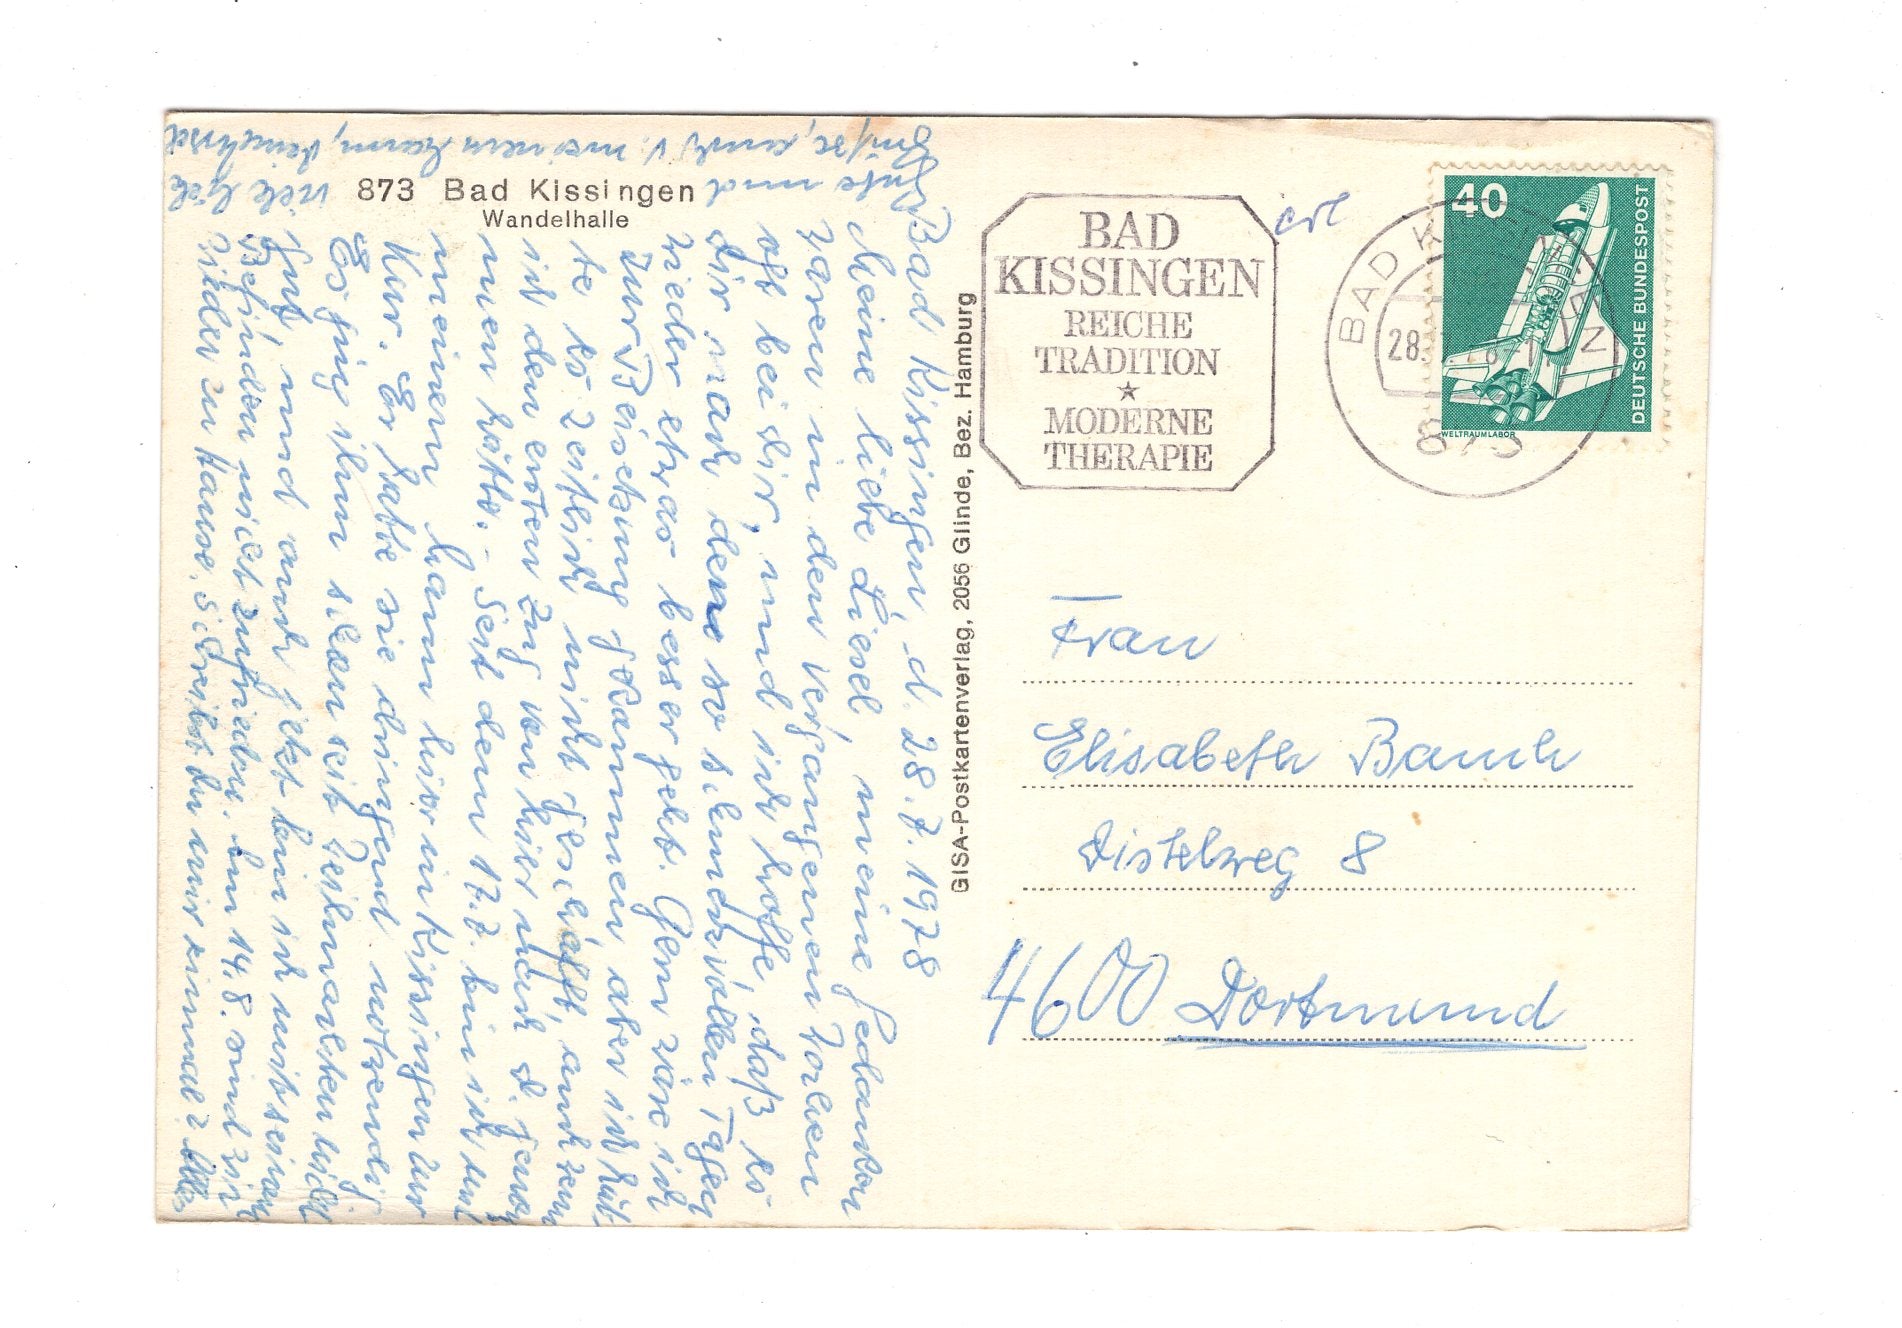 873 Bad Kissingen
Wandelhalle
Bad Kissingen, d. 28.7.1978
Meine liebe Liesel, meine Gedanken
waren in den vergangenen Wochen
oft bei dir, und ich hoffe, daß es
dir nach den so schmerzvollen Tagen
wieder etwas besser geht. Gern wäre ich
zur Beisetzung gekommen, aber ich hät-
te es zeitlich nicht geschafft, auch wenn
ich den ersten Zug von hier nach d.
nommen hätte. - Seit dem 17.7. bin ich mit
meinem Mann hier in Kissingen zur
Kur. Er hatte sie dringend notwendig.
Es ging ihm schon seit Weihnachten nicht
gut und auch jetzt bin ich mit seinem
Befinden nicht zufrieden. Am 14.8. sind wir
wieder zu Hause. Schreibst du mir einmal? Alles
Gute und viele liebe
Grüße, auch v. meinem Mann, deine
GISA-Postkartenverlag, 2056 Glinde, Bez. Hamburg
BAD
KISSINGEN
REICHE
TRADITION
★
MODERNE
THERAPIE
BAD KISSINGEN
28.
873
40
DEUTSCHE BUNDESPOST
WELTRAUMLABOR
Frau
Elisabeth Bauch
Distelweg 8
4600 Dortmund